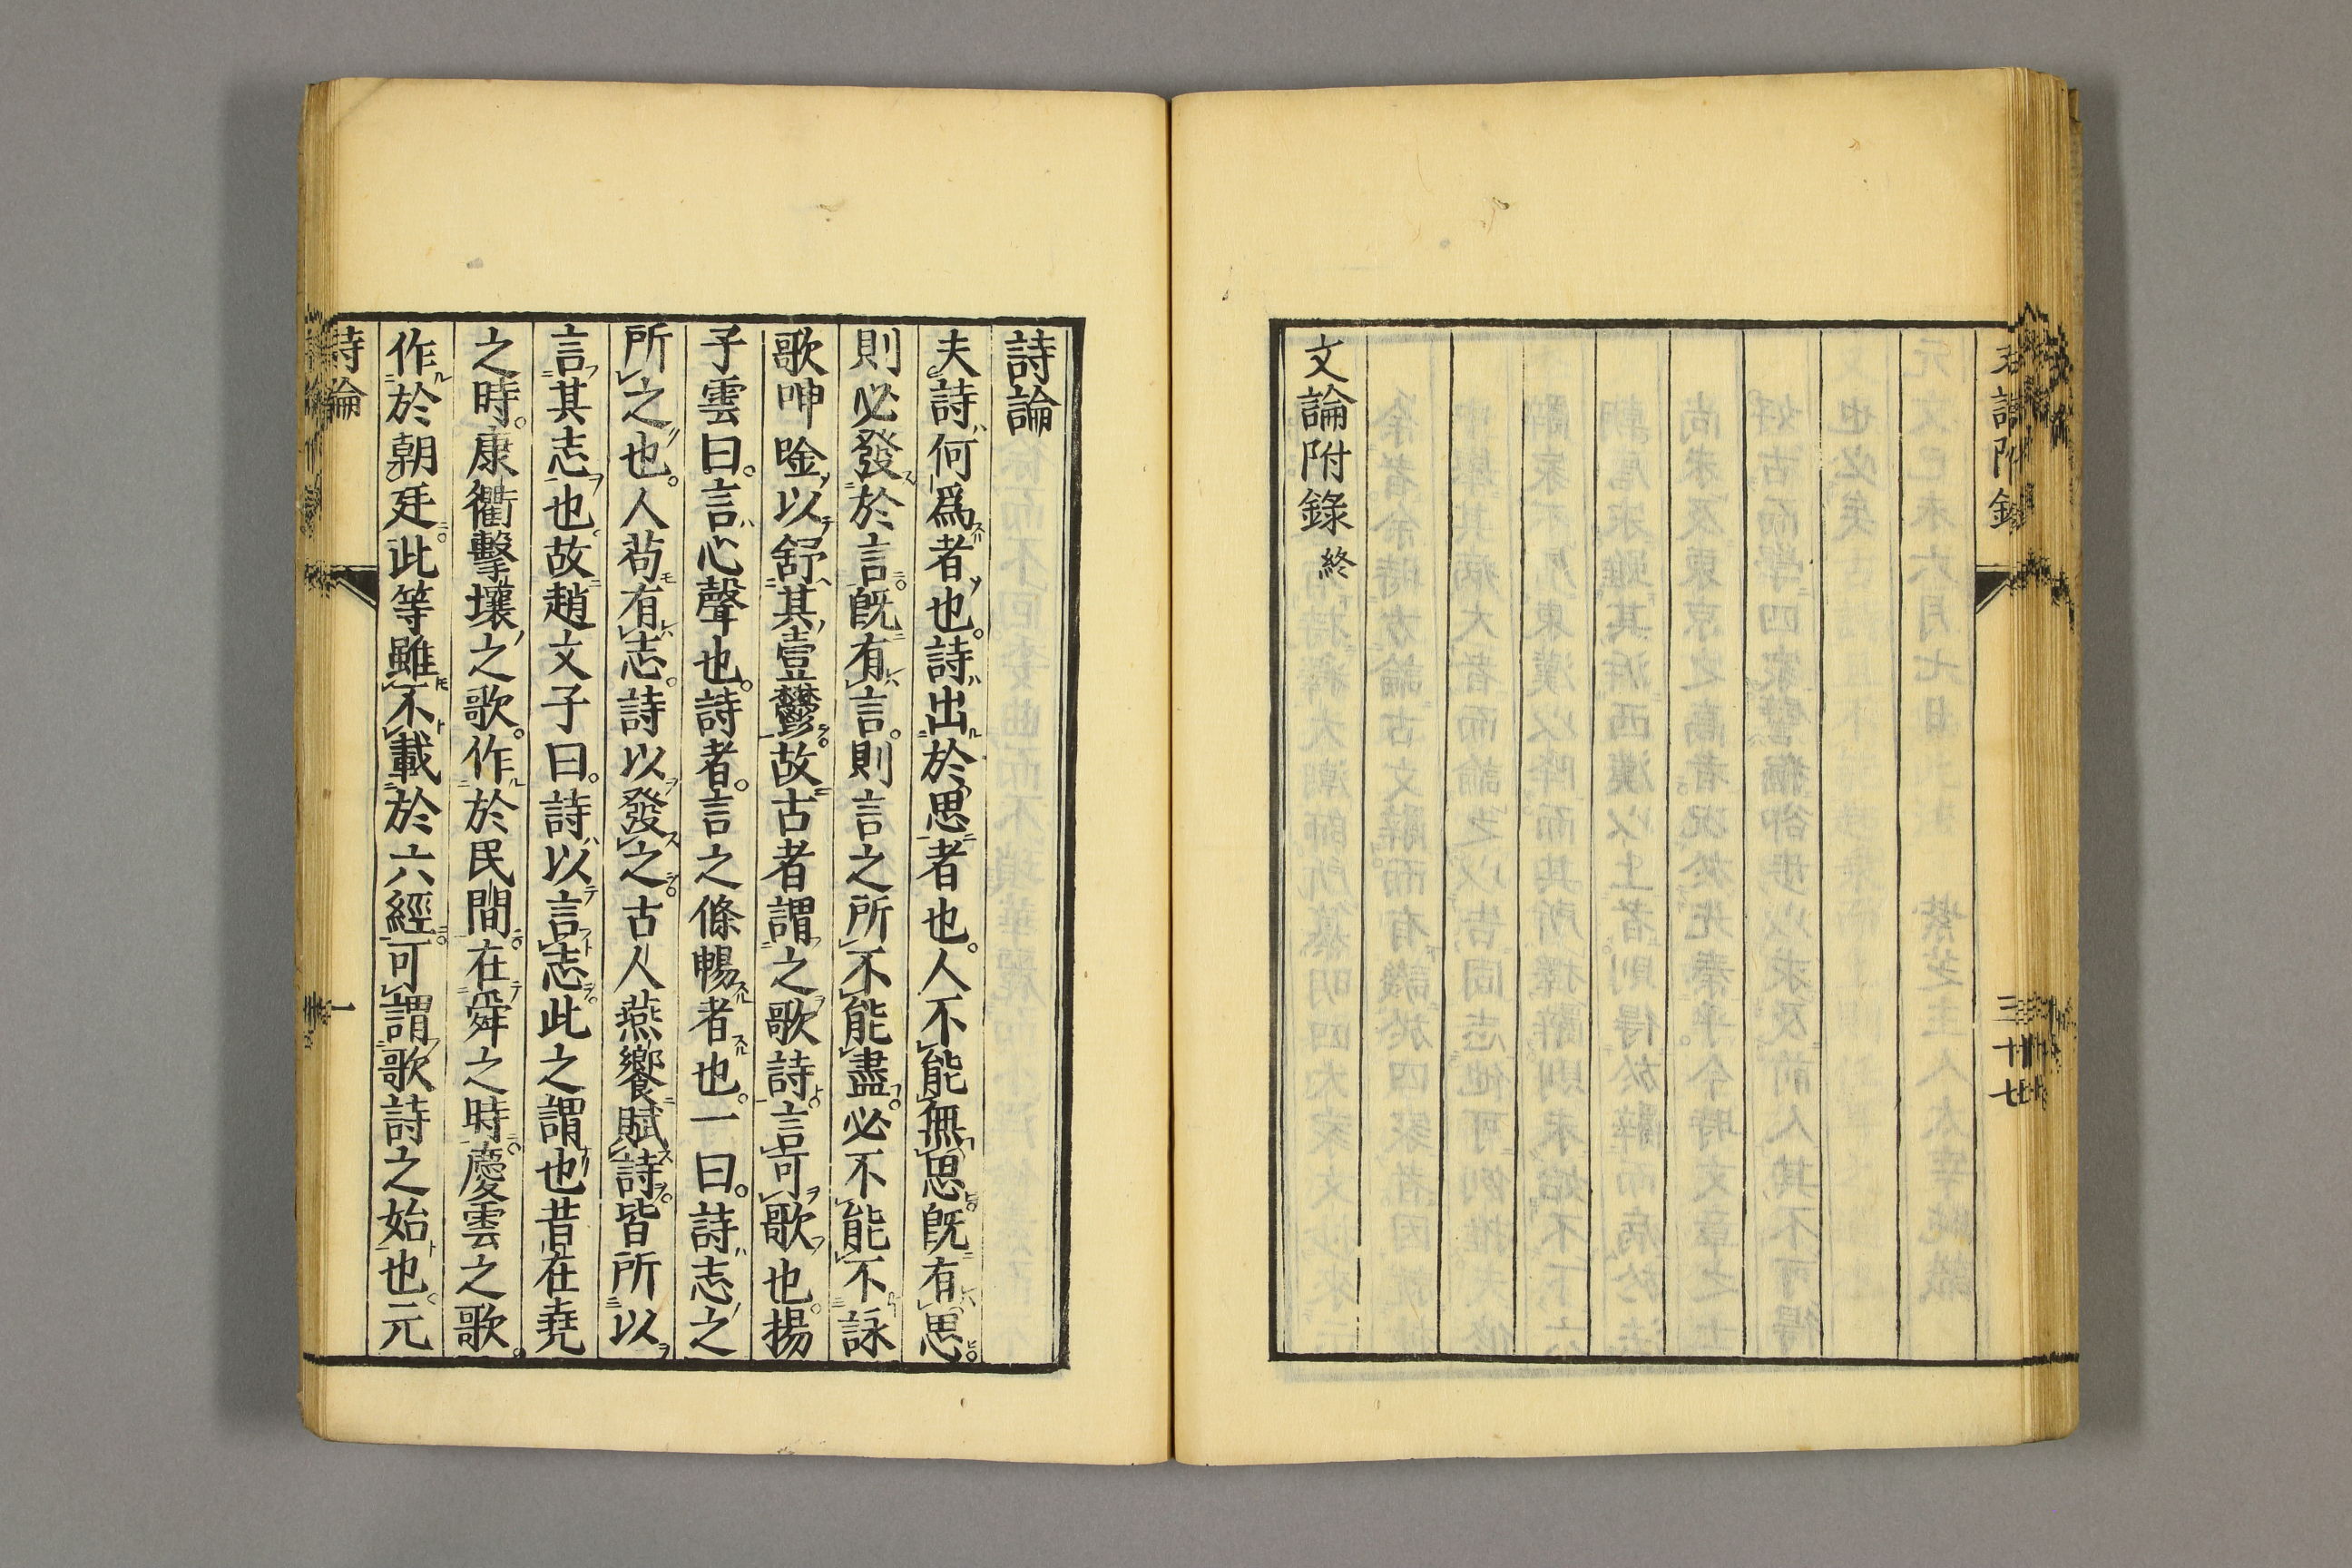 文論附錄終
三十七
詩論
夫詩何爲者也。詩出於思者也。人不能無思。既有思。
則必發於言。既有言。則言之所不能盡。必不能不詠
歌呻唫以舒其壹鬱。故古者謂之歌詩。言可歌也。揚
子雲曰。言心聲也。詩者。言之條暢者也。一曰。詩志之
所之也。人苟有志。詩以發之。古人燕饗賦詩。皆所以
言其志也。故趙文子曰。詩以言志。此之謂也。昔在堯
之時。康衢擊壤之歌。作於民間。在舜之時。慶雲之歌。
作於朝廷。此等雖不載於六經。可謂歌詩之始也。元
詩論
一